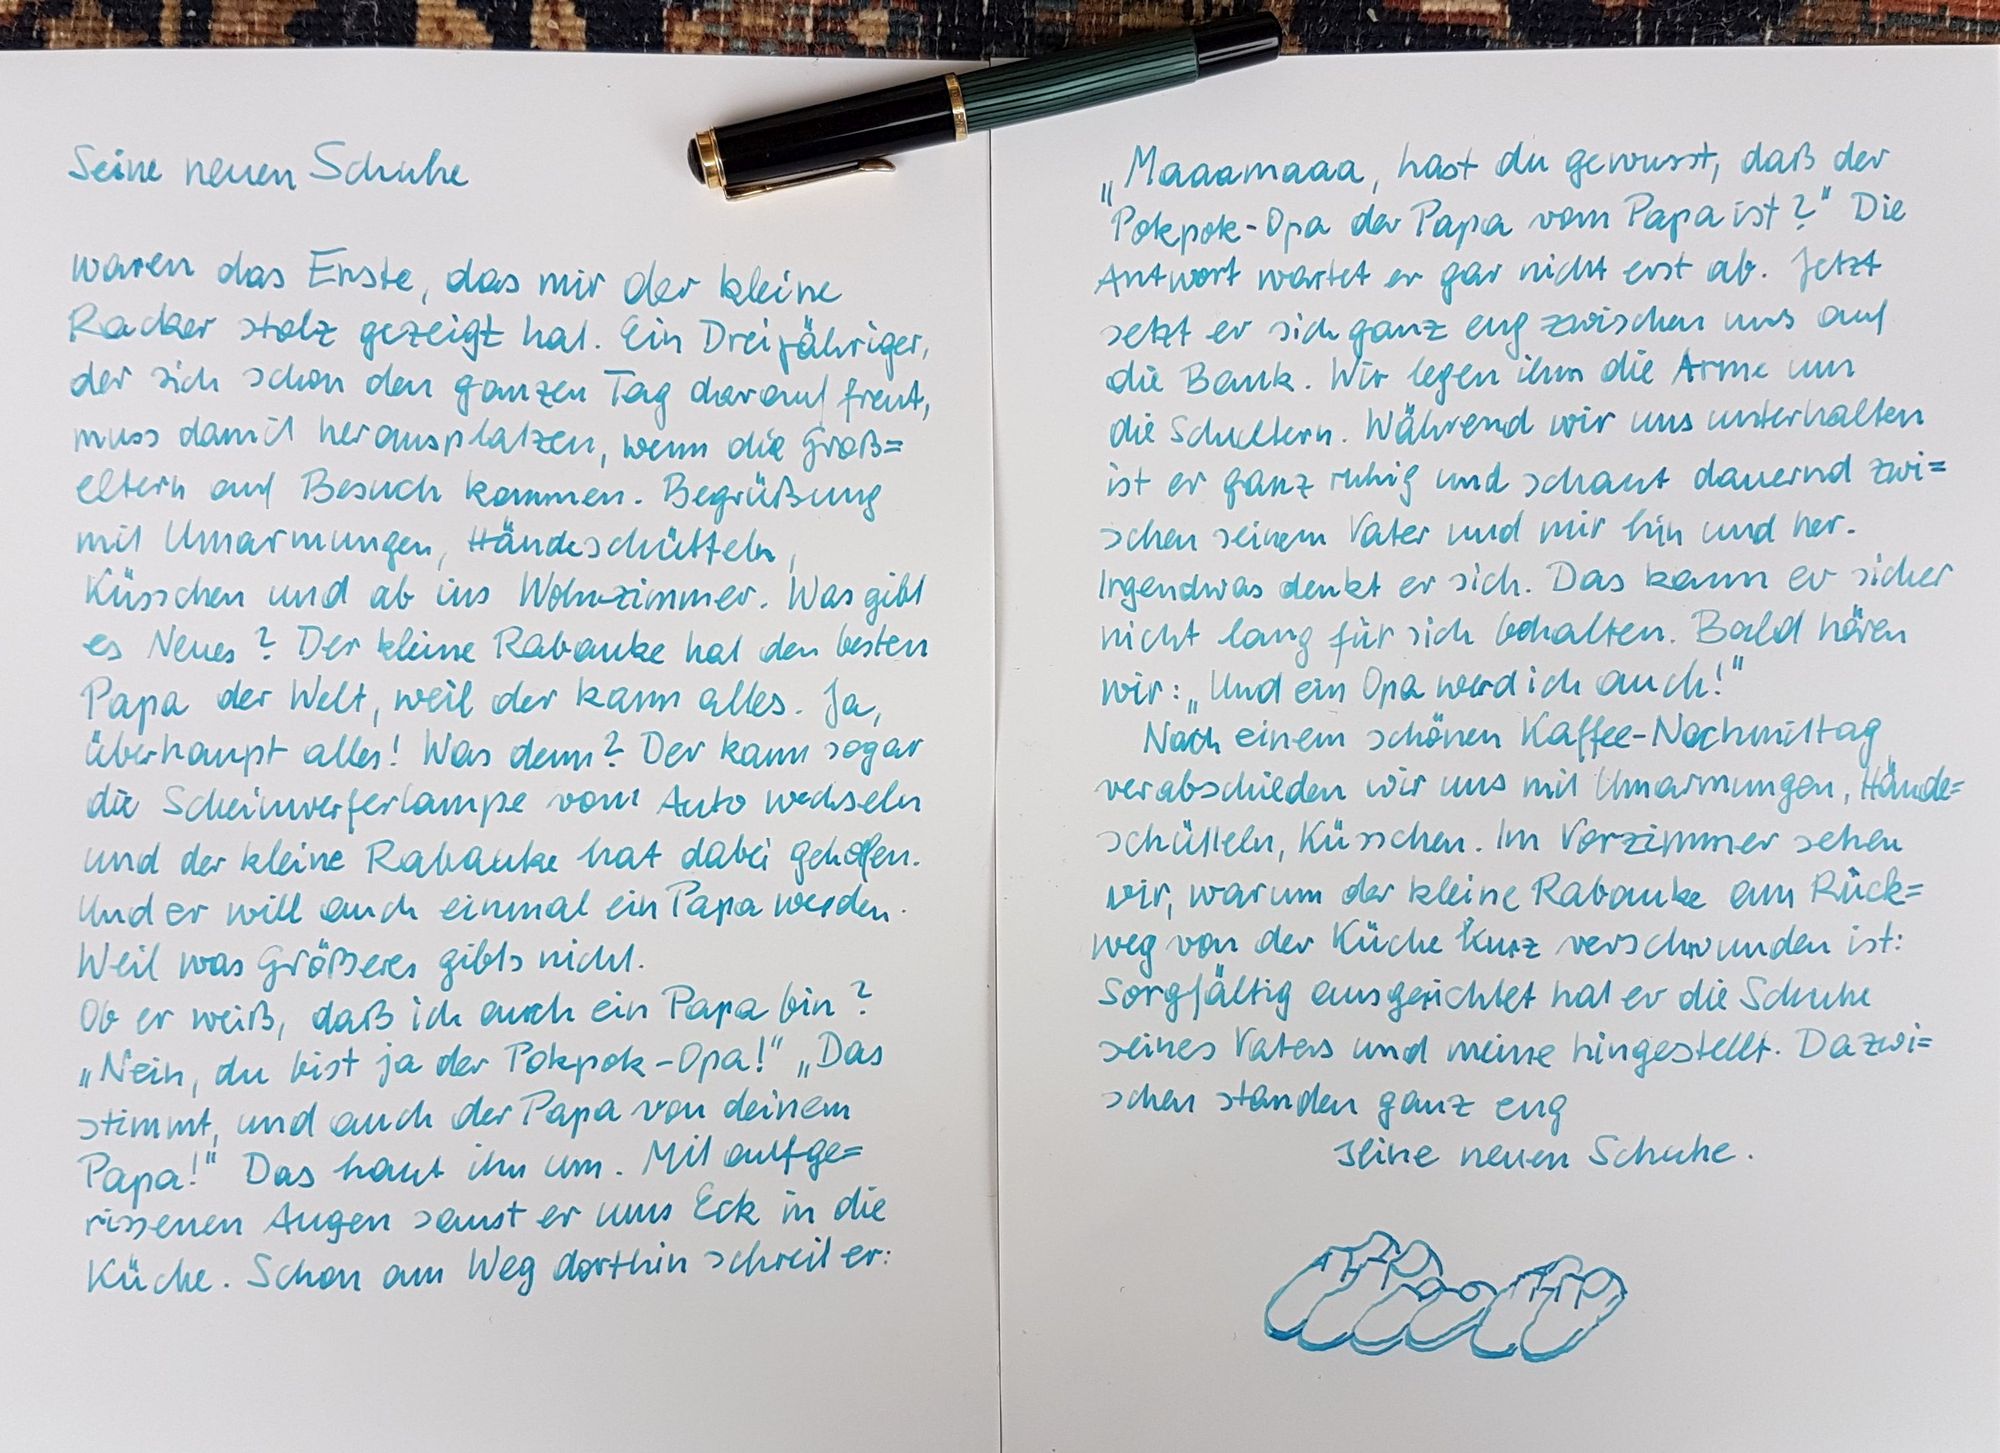 Seine neuen Schuhe
waren das Erste, das mir der kleine
Racker stolz gezeigt hat. Ein Dreijähriger,
der sich schon den ganzen Tag darauf freut,
muss damit herausplatzen, wenn die Groß=
eltern auf Besuch kommen. Begrüßung
mit Umarmungen, Händeschütteln,
Küsschen und ab ins Wohnzimmer. Was gibt
es Neues? Der kleine Rabauke hat den besten
Papa der Welt, weil der kann alles. Ja,
überhaupt alles! Was denn? Der kann sogar
die Scheinwerferlampe vom Auto wechseln
und der kleine Rabauke hat dabei geholfen.
Und er will auch einmal ein Papa werden.
Weil was Größeres gibts nicht.
Ob er weiß, daß ich auch ein Papa bin?
„Nein, du bist ja der Pokpok-Opa!" „Das
stimmt, und auch der Papa von deinem
Papa!" Das haut ihn um. Mit aufge=
rissenen Augen saust er ums Eck in die
Küche. Schon am Weg dorthin schreit er:
„Maaamaaa, hast du gewusst, daß der
Pokpok-Opa der Papa vom Papa ist?" Die
Antwort wartet er gar nicht erst ab. Jetzt
setzt er sich ganz eng zwischen uns auf
die Bank. Wir legen ihm die Arme um
die Schultern. Während wir uns unterhalten
ist er ganz ruhig und schaut dauernd zwi=
schen seinem Vater und mir hin und her.
Irgendwas denkt er sich. Das kann er sicher
nicht lang für sich behalten. Bald hören
wir: „Und ein Opa werd ich auch!"
Nach einem schönen Kaffee-Nachmittag
verabschieden wir uns mit Umarmungen, Hände=
schütteln, Küsschen. Im Vorzimmer sehen
wir, warum der kleine Rabauke am Rück=
weg von der Küche kurz verschwunden ist:
Sorgfältig ausgerichtet hat er die Schuhe
seines Vaters und meine hingestellt. Dazwi=
schen standen ganz eng
seine neuen Schuhe.